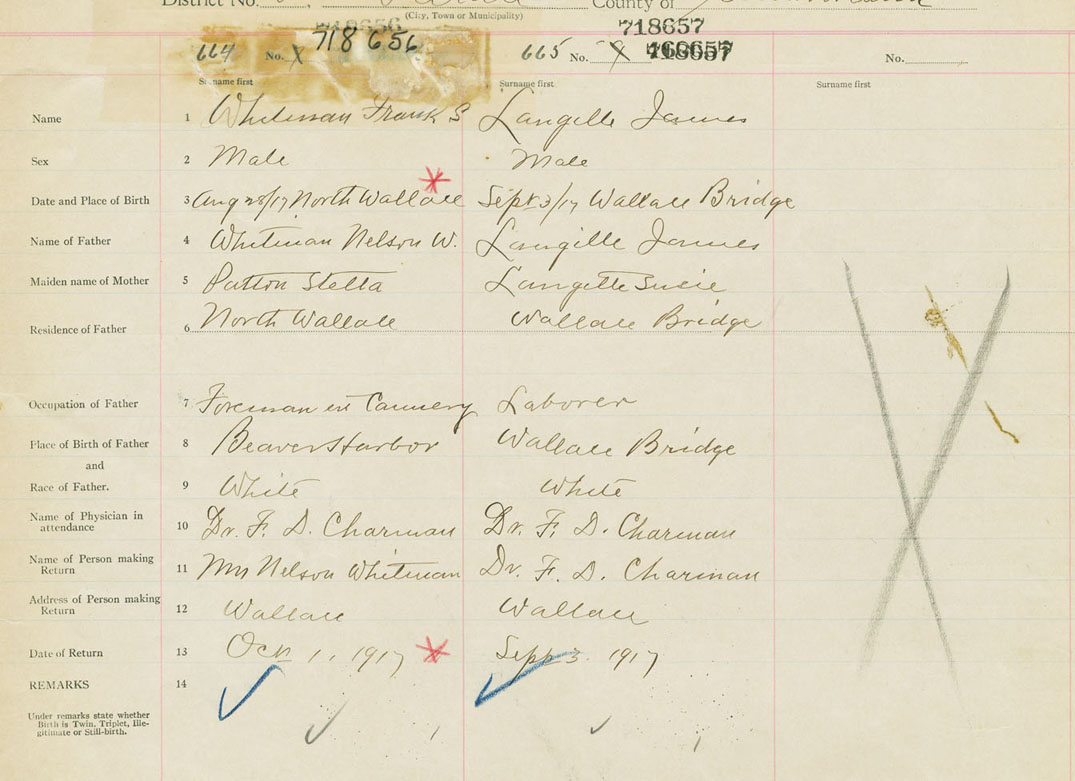 District No. County of
(City, Town or Municipality)
718656 718657
664 No. X 718656 665 No. X 718657 No.
Surname first Surname first Surname first
Name 1 Whitman Frank S Langille James
Sex 2 Male Male
Date and Place of Birth 3 Aug 28/17 North Wallace Sept 3/17 Wallace Bridge
Name of Father 4 Whitman Nelson W. Langille James
Maiden name of Mother 5 Patton Stella Langille Susie
Residence of Father 6 North Wallace Wallace Bridge
Occupation of Father 7 Foreman in Cannery Laborer
Place of Birth of Father 8 Beaver Harbor Wallace Bridge
and
Race of Father. 9 White White
Name of Physician in
attendance 10 Dr. F. D. Charman Dr. F. D. Charman
Name of Person making
Return 11 Mrs Nelson Whitman Dr. F. D. Charman
Address of Person making
Return 12 Wallace Wallace
Date of Return 13 Oct 1, 1917 Sept 3. 1917
REMARKS 14
Under remarks state whether
Birth is Twin, Triplet, Ille-
gitimate or Still-birth.